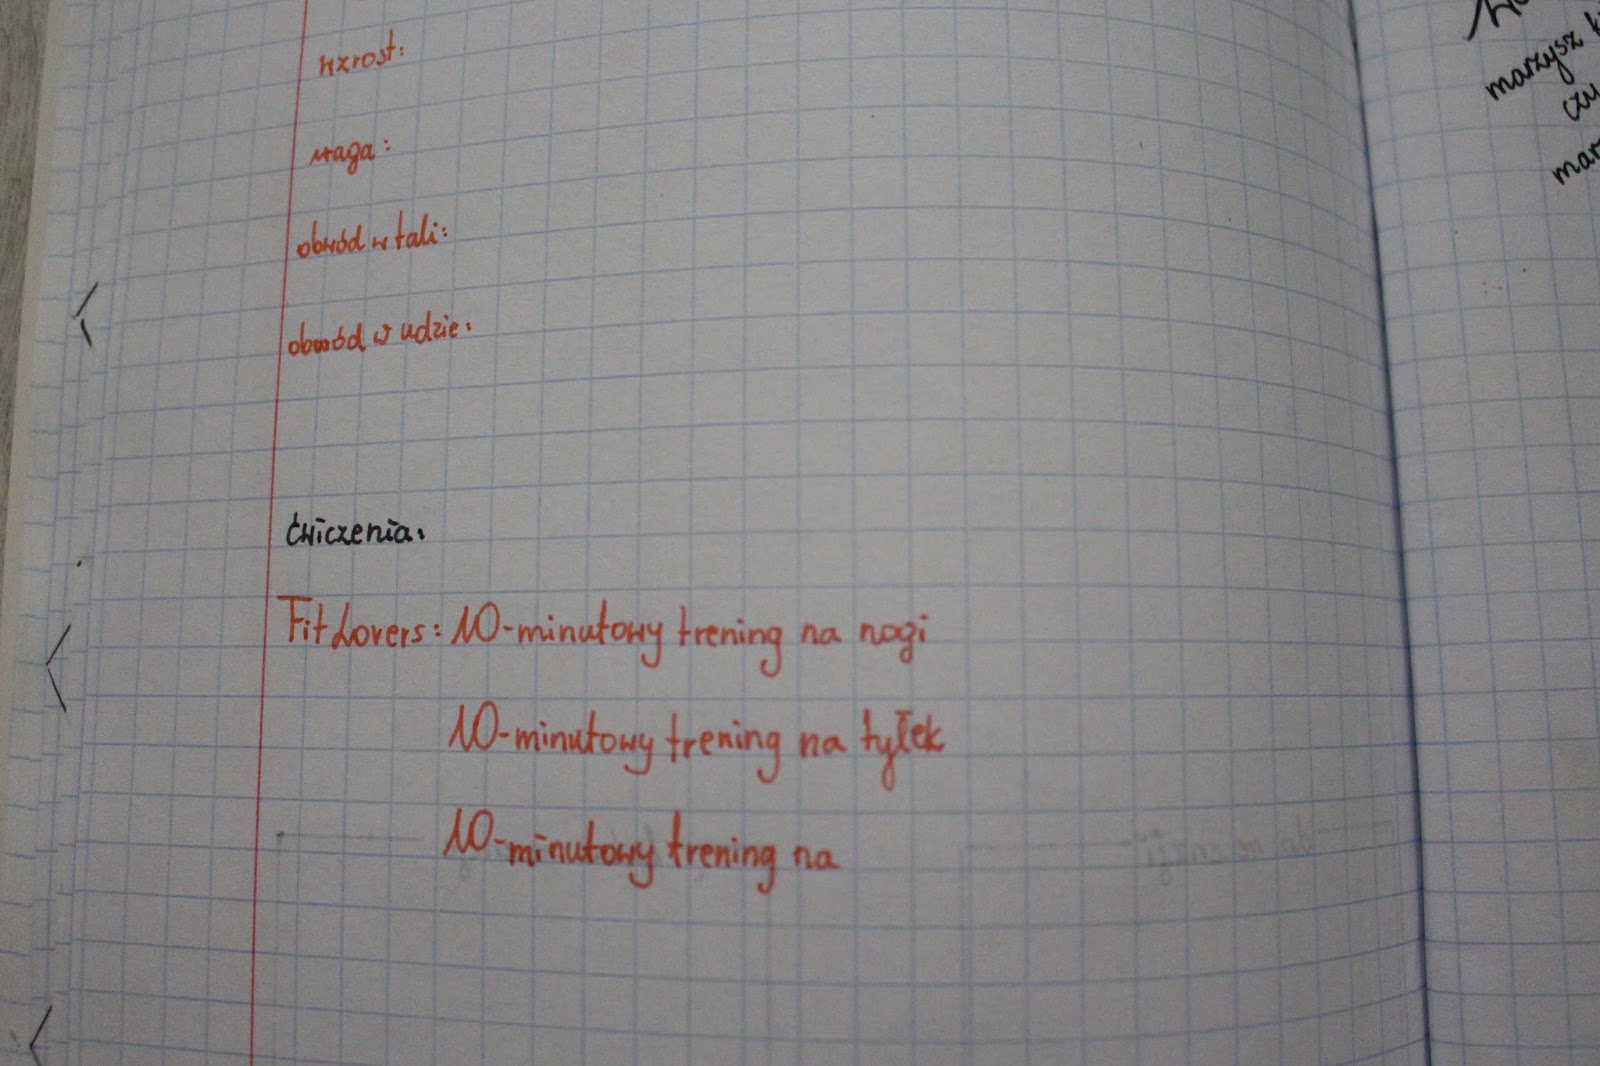 wzrost:
waga:
obwód w tali:
obwód w udzie:
ćwiczenia:
FitLovers: 10-minutowy trening na nogi
10-minutowy trening na tyłek
10-minutowy trening na
marzysz